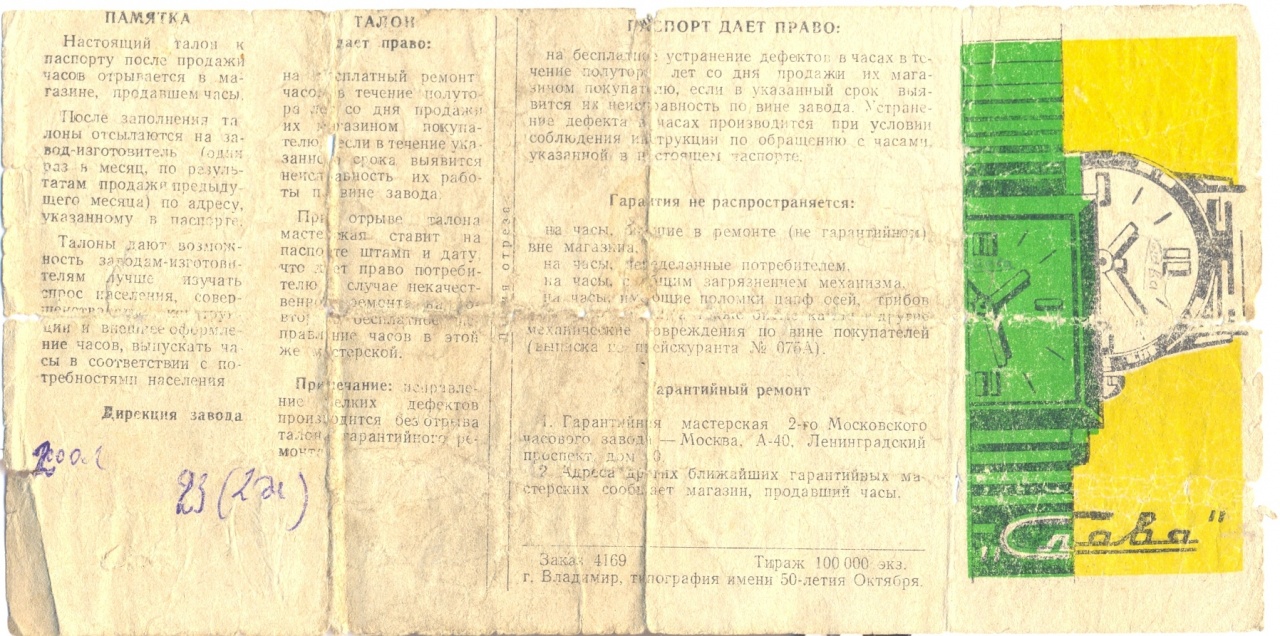 ПАМЯТКА
Настоящий талон к
паспорту после продажи
часов отрывается в ма-
газине, продавшем часы.
После заполнения та
лоны отсылаются на за-
вод-изготовитель (один
раз в месяц, по резуль-
татам продажи предыду-
щего месяца) по адресу,
указанному в паспорте.
Талоны дают возмож-
ность заводам-изготови-
телям лучше изучать
спрос населения, совер-
ции и внешнее оформле-
ние часов, выпускать ча
сы в соответствии с по-
требностями населения
Дирекция завода
23 (2
ТАЛОН
дает право:
на бесплатный ремонт
часов в течение полуто-
ра лет со дня продажи
их магазином покупа-
телю, если в течение ука-
занного срока выявится
неисправность их рабо-
ты по вине завода.
При отрыве талона
мастерская ставит на
паспорте штамп и дату,
что дает право потреби-
телю в случае некачест-
венного ремонта на по-
правление часов в этой
же мастерской.
Примечание: исправле-
ние мелких дефектов
производится без отрыва
талона гарантийного ре-
монта
отреза
ПАСПОРТ ДАЕТ ПРАВО:
на бесплатное устранение дефектов в часах в те-
чение полутора лет со дня продажи их мага-
зином покупателю, если в указанный срок выя-
вится их неисправность по вине завода. Устране-
ние дефекта в часах производится при условии
соблюдения инструкции по обращению с часами,
указанной в настоящем паспорте.
Гарантия не распространяется:
на часы, бывшие в ремонте (не гарантийном)
вне магазина.
на часы, переделанные потребителем.
на часы, с общим загрязнением механизма.
на часы, имеющие поломки цапф осей, грибов
также другие
механические повреждения по вине покупателей
(выписка из прейскуранта № 075А).
Гарантийный ремонт
1. Гарантийная мастерская 2-го Московского
часового завода — Москва, А-40, Ленинградский
проспект, дом
2. Адреса других ближайших гарантийных ма-
стерских сообщает магазин, продавший часы.
Заказ 4169 Тираж 100 000 экз.
г. Владимир, типография имени 50-летия Октября.
"Слава"